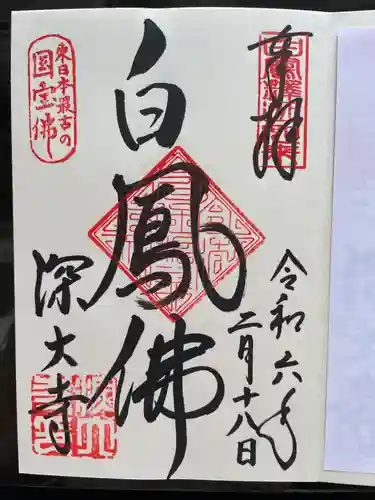 奉拝
令和六年
二月十八日
白鳳佛
東日本最古の
国宝佛
深大寺